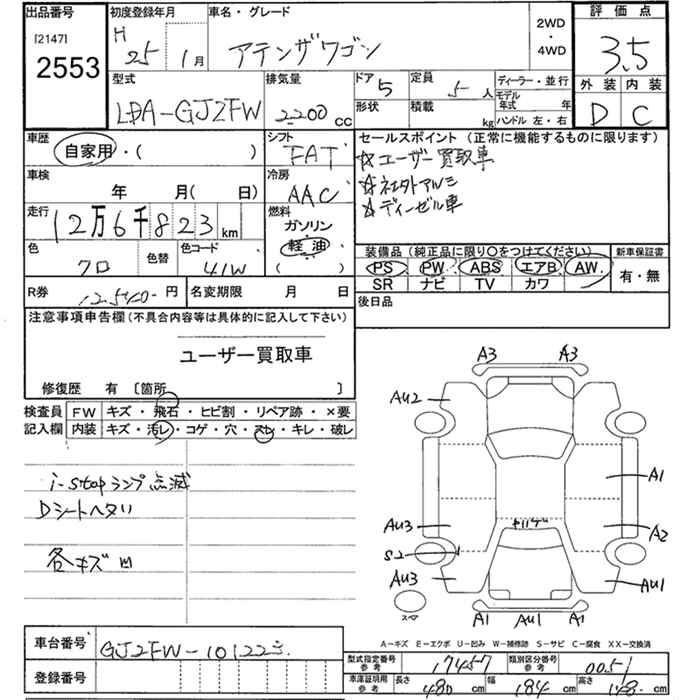 出品番号
[2147]
2553
初度登録年月
H 25 1月
車名・グレード
アテンザワゴン
2WD
・
4WD
評価点
3.5
外装 内装
D C
型式
LDA-GJ2FW
排気量
2200cc
ドア 5
形状
定員 5人
積載 kg
ディーラー・並行
モデル年式 年
ハンドル 左・右
車歴
自家用・( )
シフト
FAT
セールスポイント(正常に機能するものに限ります)
☆ユーザー買取車
☆社外アルミ
☆ディーゼル車
車検
年 月( 日)
冷房
AAC
走行
12万6千823km
燃料
ガソリン
軽油
( )
色
クロ
色替
色コード
41W
装備品(純正品に限り○をつけてください)
PS PW ABS エアB AW
SR ナビ TV カワ
新車保証書
有・無
R券 12540円
名変期限 月 日
後日品
注意事項申告欄(不具合内容等は具体的に記入して下さい)
ユーザー買取車
修復歴 有 〔箇所 〕
検査員記入欄
FW キズ・飛石・ヒビ割・リペア跡・×要
内装 キズ・汚レ・コゲ・穴・スレ・キレ・破レ
i-stopランプ点滅
Dシートヘタリ
各キズ凹
A3 A3
AU2
A1
AU3 A2
S2
AU3 AU1
A1 AU1 A1
スペア
A-キズ E-エクボ U-凹み W-補修跡 S-サビ C-腐食 XX-交換済
車台番号 GJ2FW-101223
登録番号
型式指定番号 参考 17457
類別区分番号 参考 0051
車庫証明用 参考 長さ 480cm 幅 184cm 高さ 148cm